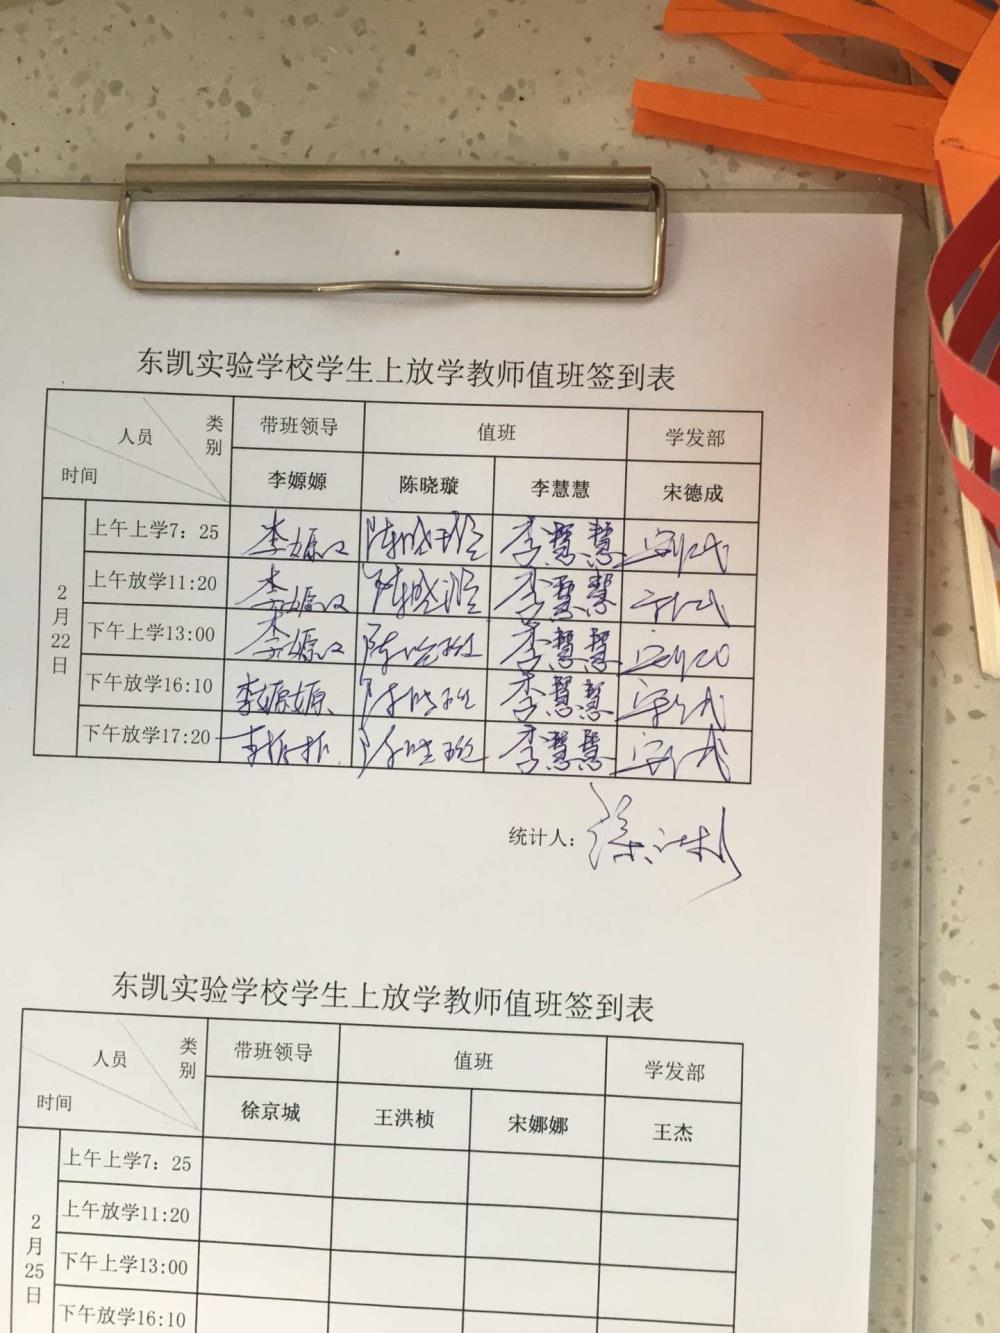 东凯实验学校学生上放学教师值班签到表
人员 类别 时间 带班领导 值班 学发部
李嫄嫄 陈晓璇 李慧慧 宋德成
2月22日
上午上学7：25 李嫄嫄 陈晓璇 李慧慧
上午放学11:20 李嫄嫄 陈晓璇 李慧慧
下午上学13:00 李嫄嫄 陈晓璇 李慧慧
下午放学16:10 李嫄嫄 陈晓璇 李慧慧
下午放学17:20 陈晓璇 李慧慧
统计人：
东凯实验学校学生上放学教师值班签到表
人员 类别 时间 带班领导 值班 学发部
徐京城 王洪桢 宋娜娜 王杰
2月25日
上午上学7：25
上午放学11:20
下午上学13:00
下午放学16:10